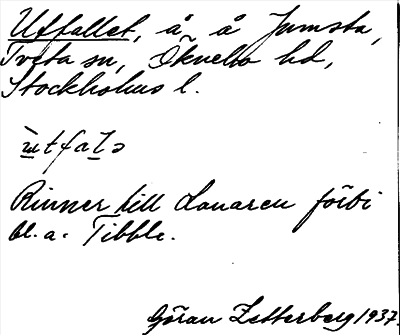 Utfallet, å å Jumsta,
Tveta sn, Öknebo hd,
Stockholms l.
ùtfalə
Rinner till Lanaren förbi
bl. a. Tibble.
Göran Zetterberg 1937